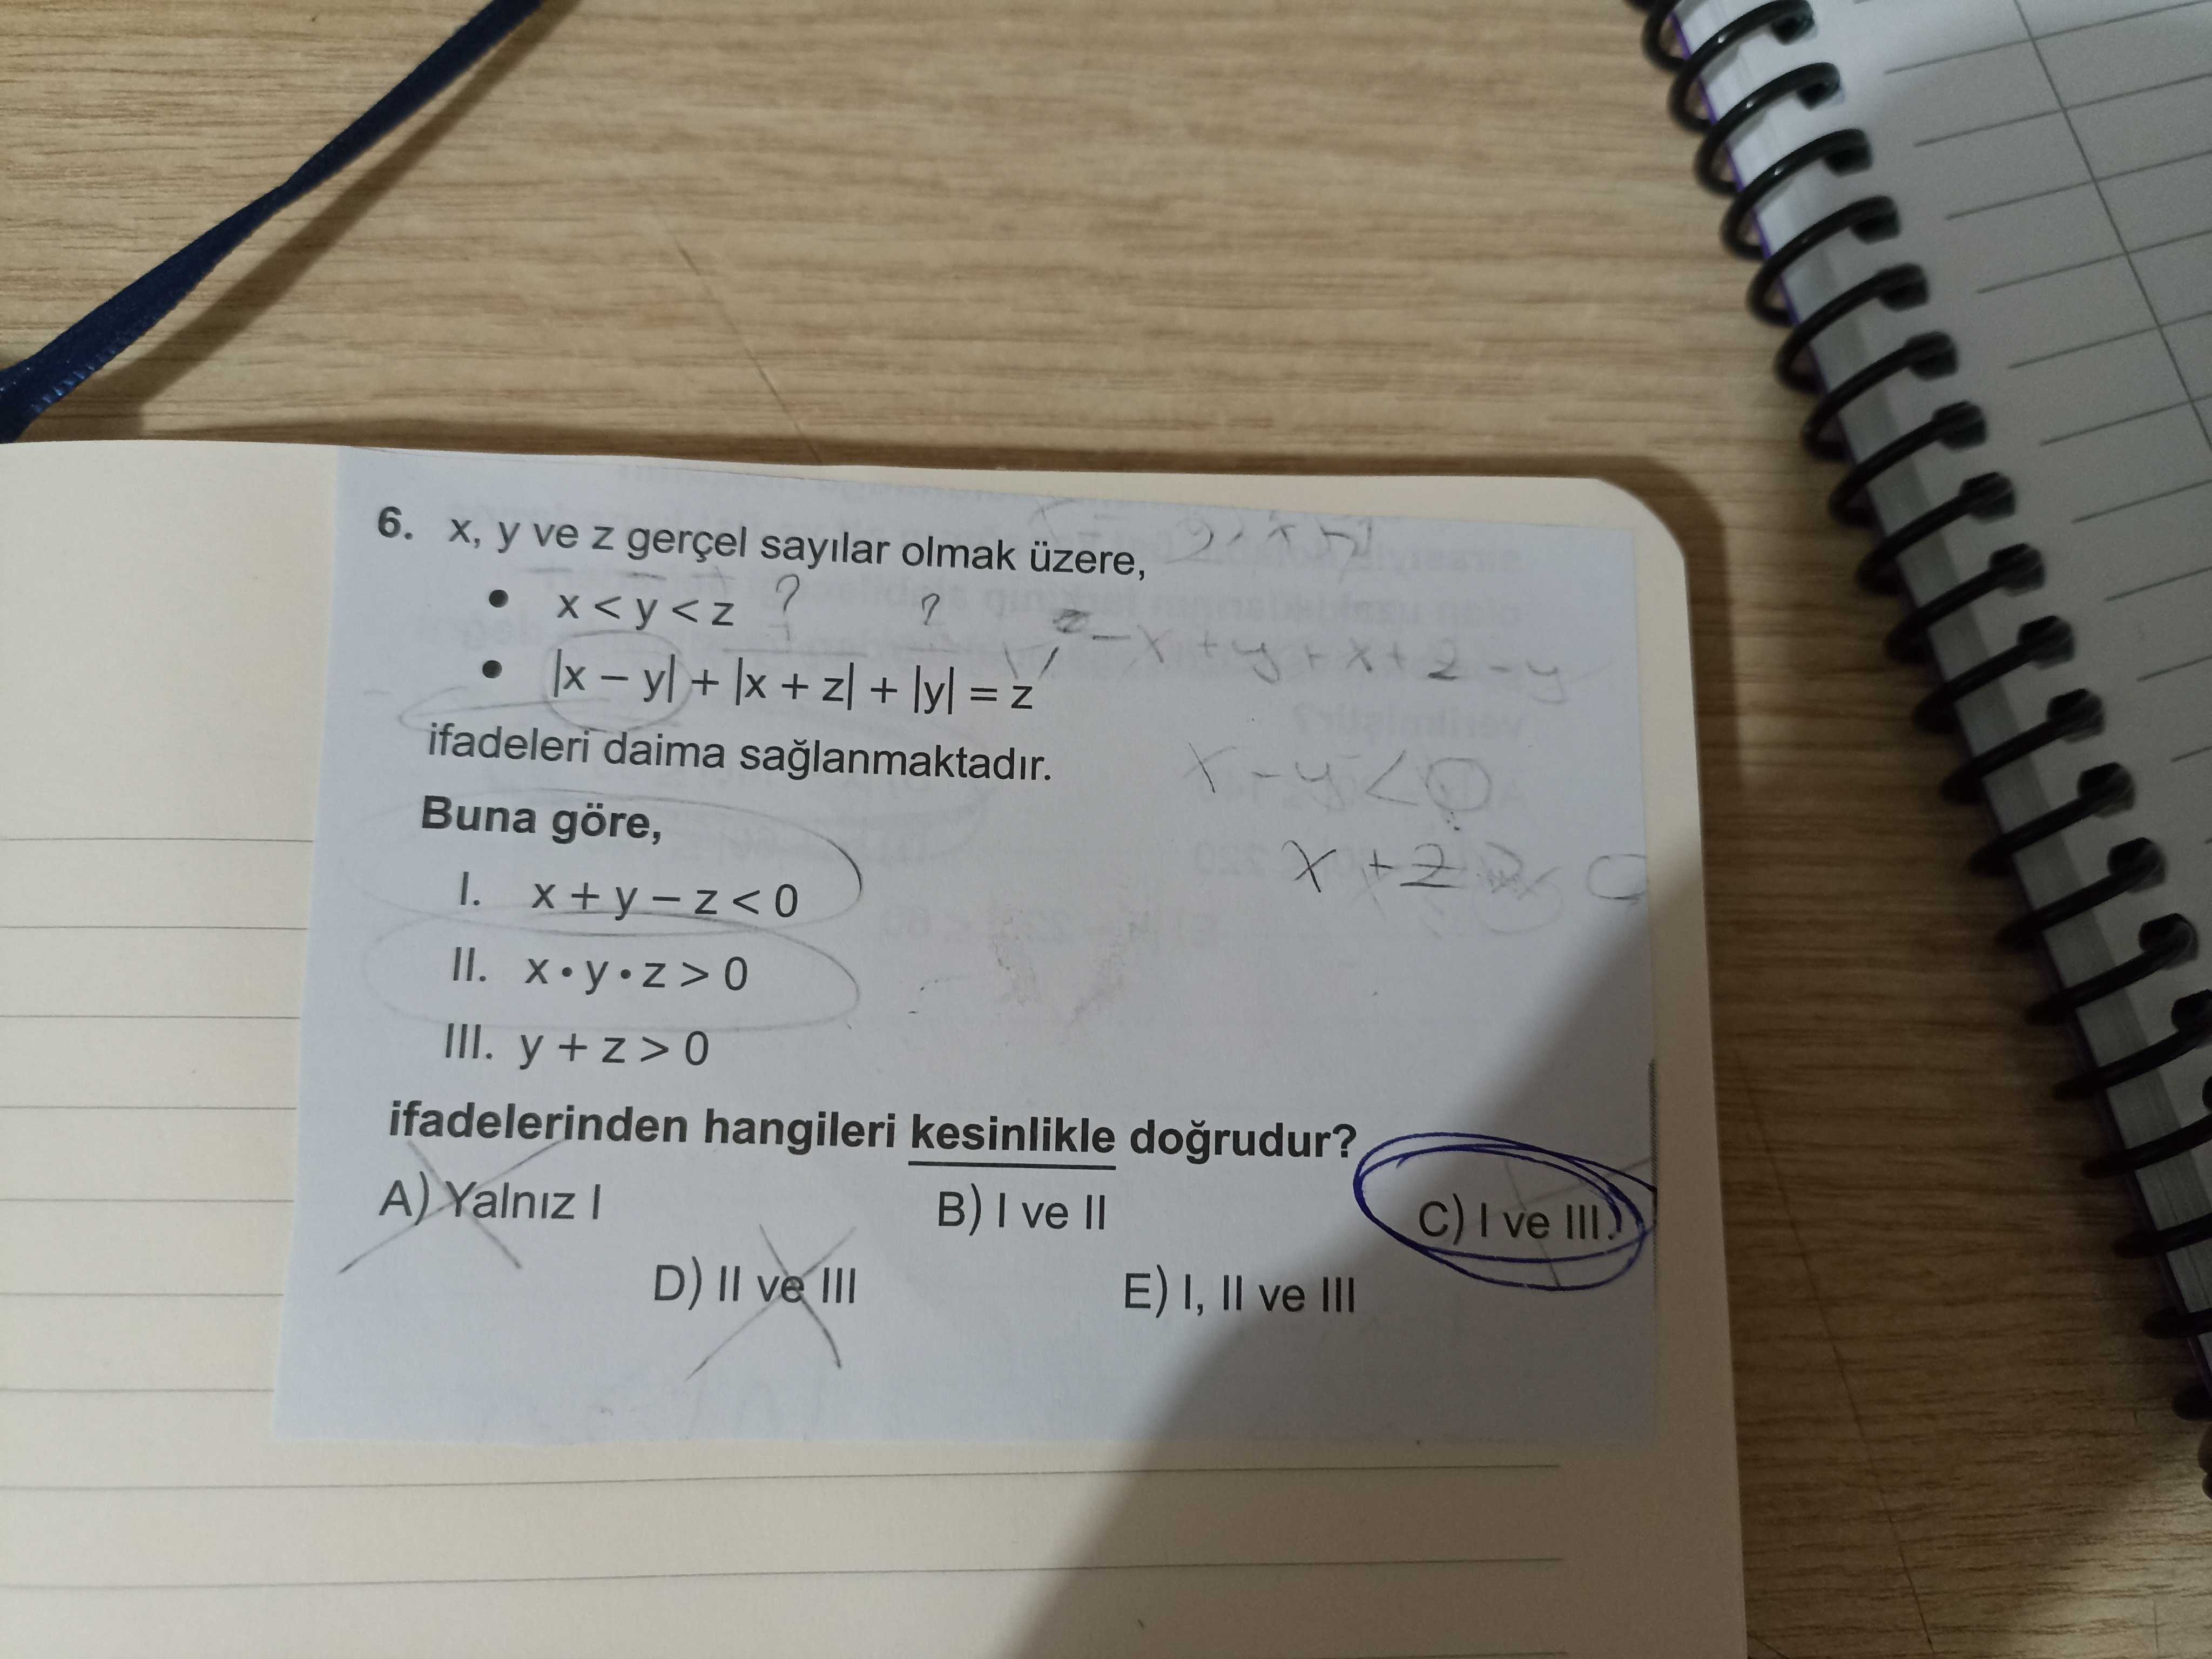 6. x, y ve z gerçel sayılar olmak üzere,
• x < y < z ?
?
z - x + y + x + z - y
• |x − y| + |x + z| + |y| = z
ifadeleri daima sağlanmaktadır.
x - y < 0
Buna göre,
x + z > 0
I. x + y − z < 0
II. x • y • z > 0
III. y + z > 0
ifadelerinden hangileri kesinlikle doğrudur?
A) Yalnız I B) I ve II C) I ve III
D) II ve III E) I, II ve III